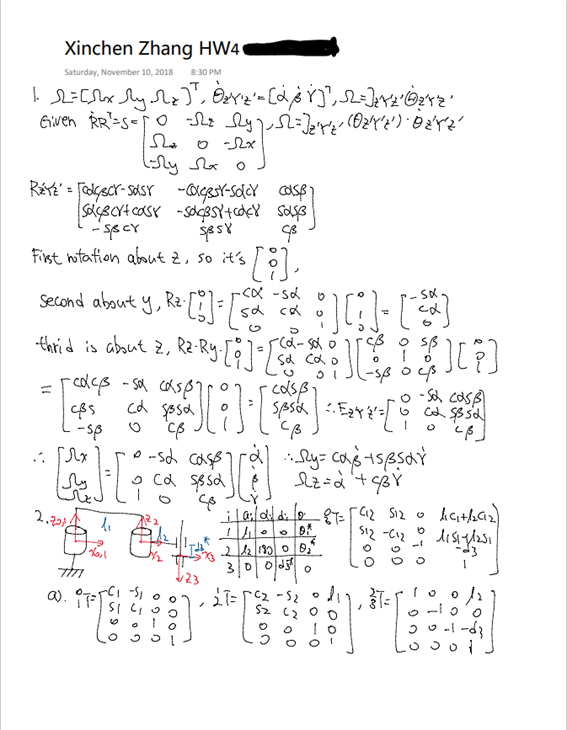 Xinchen Zhang HW4
Saturday, November 10, 2018 8:30 PM
1. Ω=[Ωx Ωy Ωz]ᵀ, Θ̇z'Y'z'=[α̇ β̇ γ̇]ᵀ, Ω=Jz'Y'z' Θ̇z'Y'z'
Given ṘRᵀ=S=[0 -Ωz Ωy], Ω=Jz'Y'z'(Θz'Y'z')·Θ̇z'Y'z'
[Ωz 0 -Ωx]
[-Ωy Ωx 0]
Rz'Y'z' = [cαcβcγ-sαsγ -cαcβsγ-sαcγ cαsβ]
[sαcβcγ+cαsγ -sαcβsγ+cαcγ sαsβ]
[-sβcγ sβsγ cβ]
First rotation about z, so it's [0 0 1],
second about y, Rz·[0 1 0] = [cα -sα 0; sα cα 0; 0 0 1][0 1 0] = [-sα cα 0]
thrid is about z, Rz·Ry·[0 0 1] = [cα -sα 0; sα cα 0; 0 0 1][cβ 0 sβ; 0 1 0; -sβ 0 cβ][0 0 1]
= [cαcβ -sα cαsβ; cβs cα sβsα; -sβ 0 cβ][0 0 1] = [cαsβ sβsα cβ] ∴Ez'Y'z'=[0 -sα cαsβ; 0 cα sβsα; 1 0 cβ]
∴ [Ωx Ωy Ωz] = [0 -sα cαsβ; 0 cα sβsα; 1 0 cβ][α̇ β̇ γ̇] ∴Ωy=cαβ̇+sβsαγ̇
Ωz=α̇ + cβγ̇
2. z0,1 l1 z2 l2 d3* x0,1 x2 x3 z3
i a αi di θ
1 l1 0 0 θ1*
2 l2 180 0 θ2*
3 0 0 d3* 0
⁰₃T=[C12 S12 0 l1C1+l2C12]
[S12 -C12 0 l1S1+l2S1]
[0 0 -1 -d3]
[0 0 0 1]
a). ⁰₁T=[C1 -S1 0 0; S1 C1 0 0; 0 0 1 0; 0 0 0 1], ¹₂T=[C2 -S2 0 l1; S2 C2 0 0; 0 0 1 0; 0 0 0 1], ²₃T=[1 0 0 l2; 0 -1 0 0; 0 0 -1 -d3; 0 0 0 1]